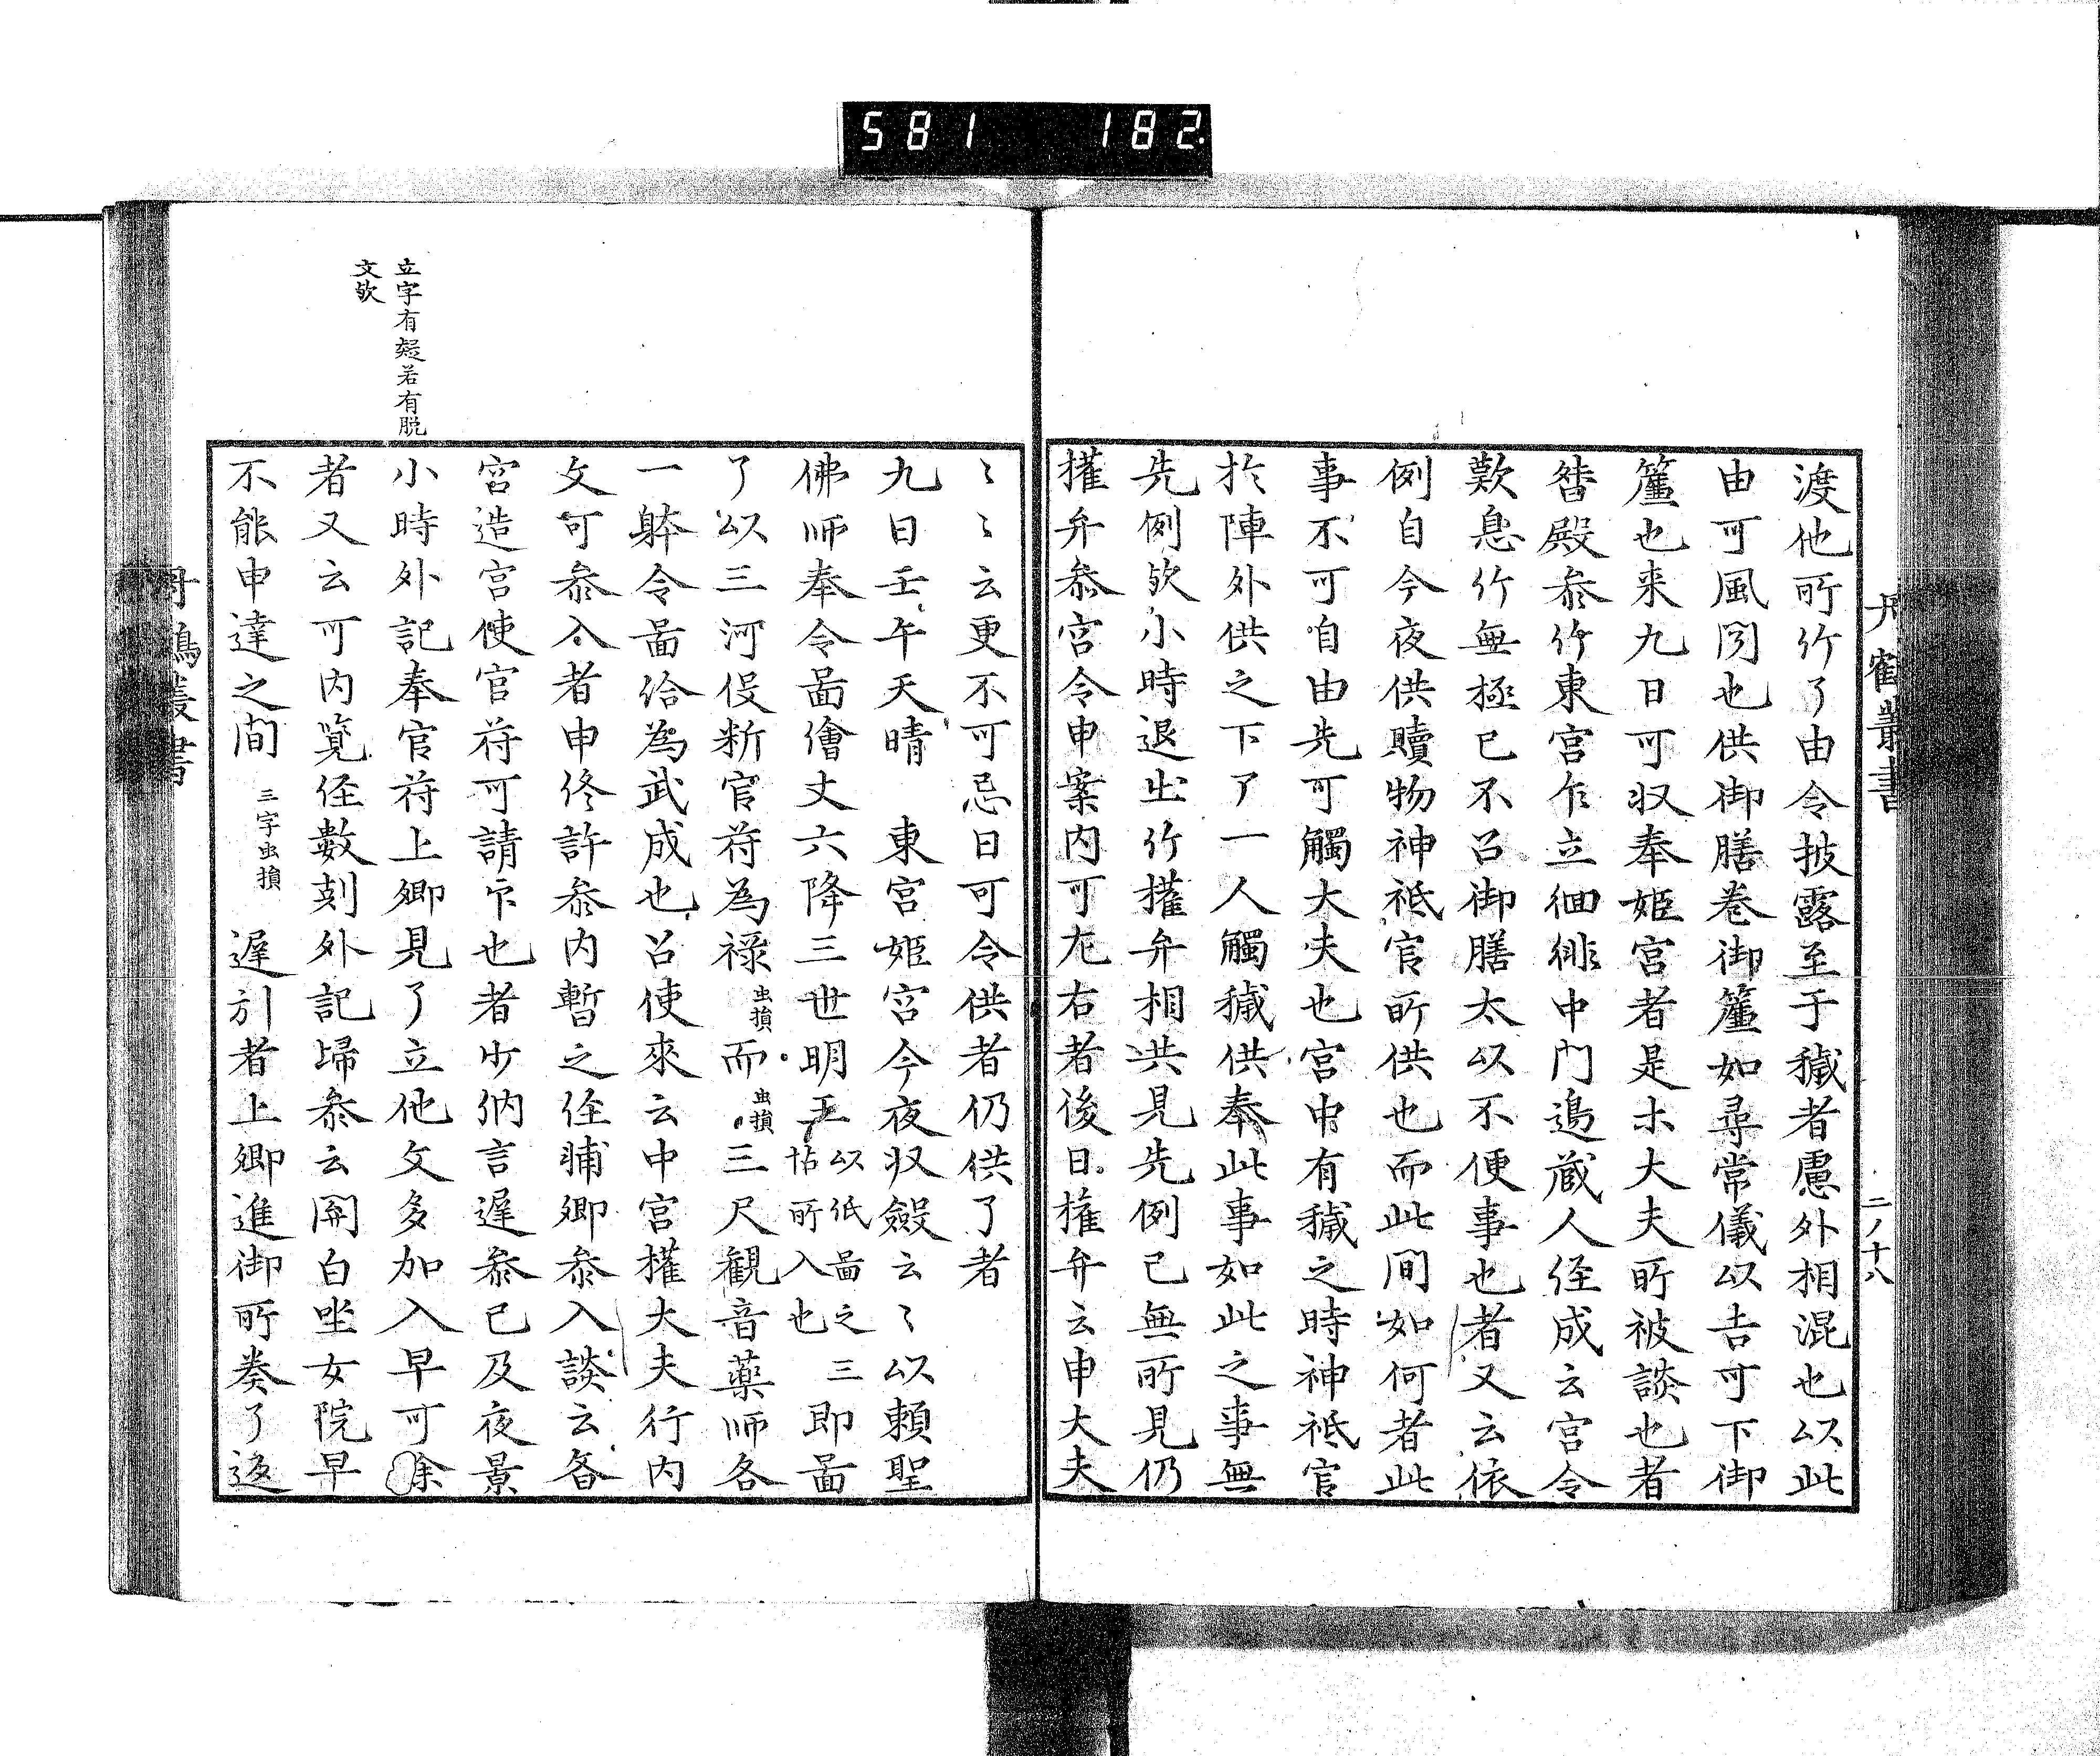 581 182
丹鶴叢書
二ノ十八
渡他所竹了由令披露至于穢者慮外相混也以此
由可風聞也供御膳巻御簾如尋常儀以吉可下御
簾也来九日可収奉姫宮者是木大夫所被談也者
昝殿参竹東宮乍立徊徘中門邉蔵人経成云宮令
歎息竹無極已不召御膳太以不便事也者又云依
例自今夜供贖物神祇官所供也而此間如何者此
事不可自由先可觸大夫也宮中有穢之時神祇官
於陣外供之下了一人觸穢供奉此事如此之事無
先例欤小時退出竹權弁相共見先例已無所見仍
權弁参宮令申案内可尢右者後日權弁云申大夫
〻〻云更不可忌日可令供者仍供了者
九日壬午天晴 東宮姫宮今夜収斂云〻以頼聖
佛師奉令畫繪丈六降三世明王以紙畫之三帖所入也即畫
了以三河役新官符為禄虫損而虫損三尺觀音藥師各
一躰令畫給為武成也召使來云中宮權大夫行内
文可参入者申修許参内暫之経輔卿参入談云昝
宮造宮使官符可請印也者少納言遲参已及夜景
小時外記奉官符上卿見了立他文多加入早可除
者又云可内覧経數刻外記歸参云関白坐女院早
不能申達之間 三字虫損 遲引者上卿進御所奏了返
立字有疑若有脱
文欤
丹鶴叢書